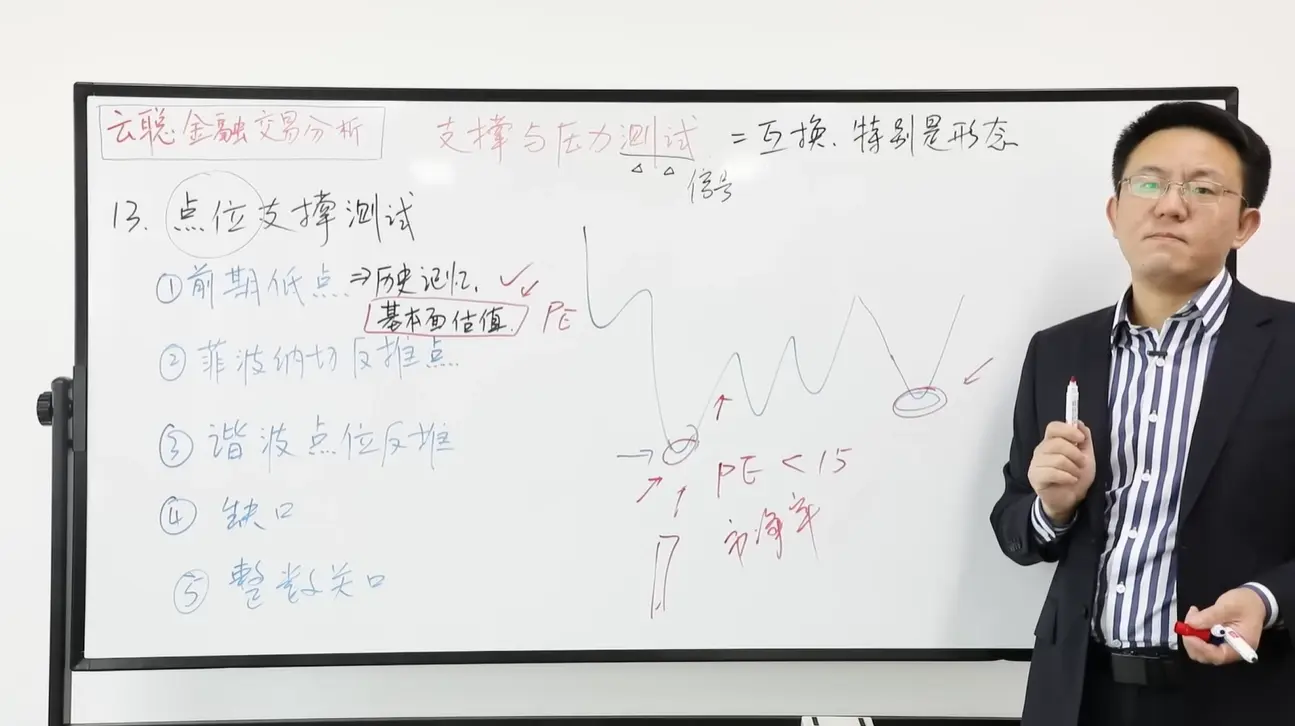 云聪金融交易分析
支撑与压力测试 = 互换、特别是形态
信号
13. 点位支撑测试
①前期低点 ⇒历史记忆、
基本面估值. PE
②菲波纳切反推点
③谐波点位反推
④缺口
⑤整数关口
PE < 15
市净率